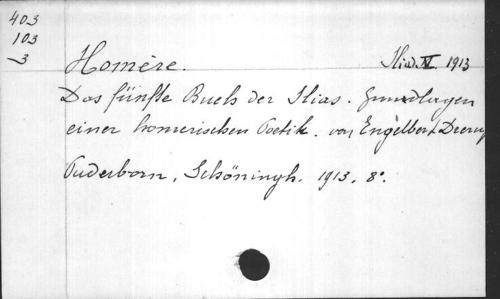 403
103
3
Homère. Iliad. IV. 1913
Das fünfte Buch der Ilias. Grundlagen
einer homerischen Poetik. von Engelbert Drerup
Paderborn, Schöningh. 1913. 8°.